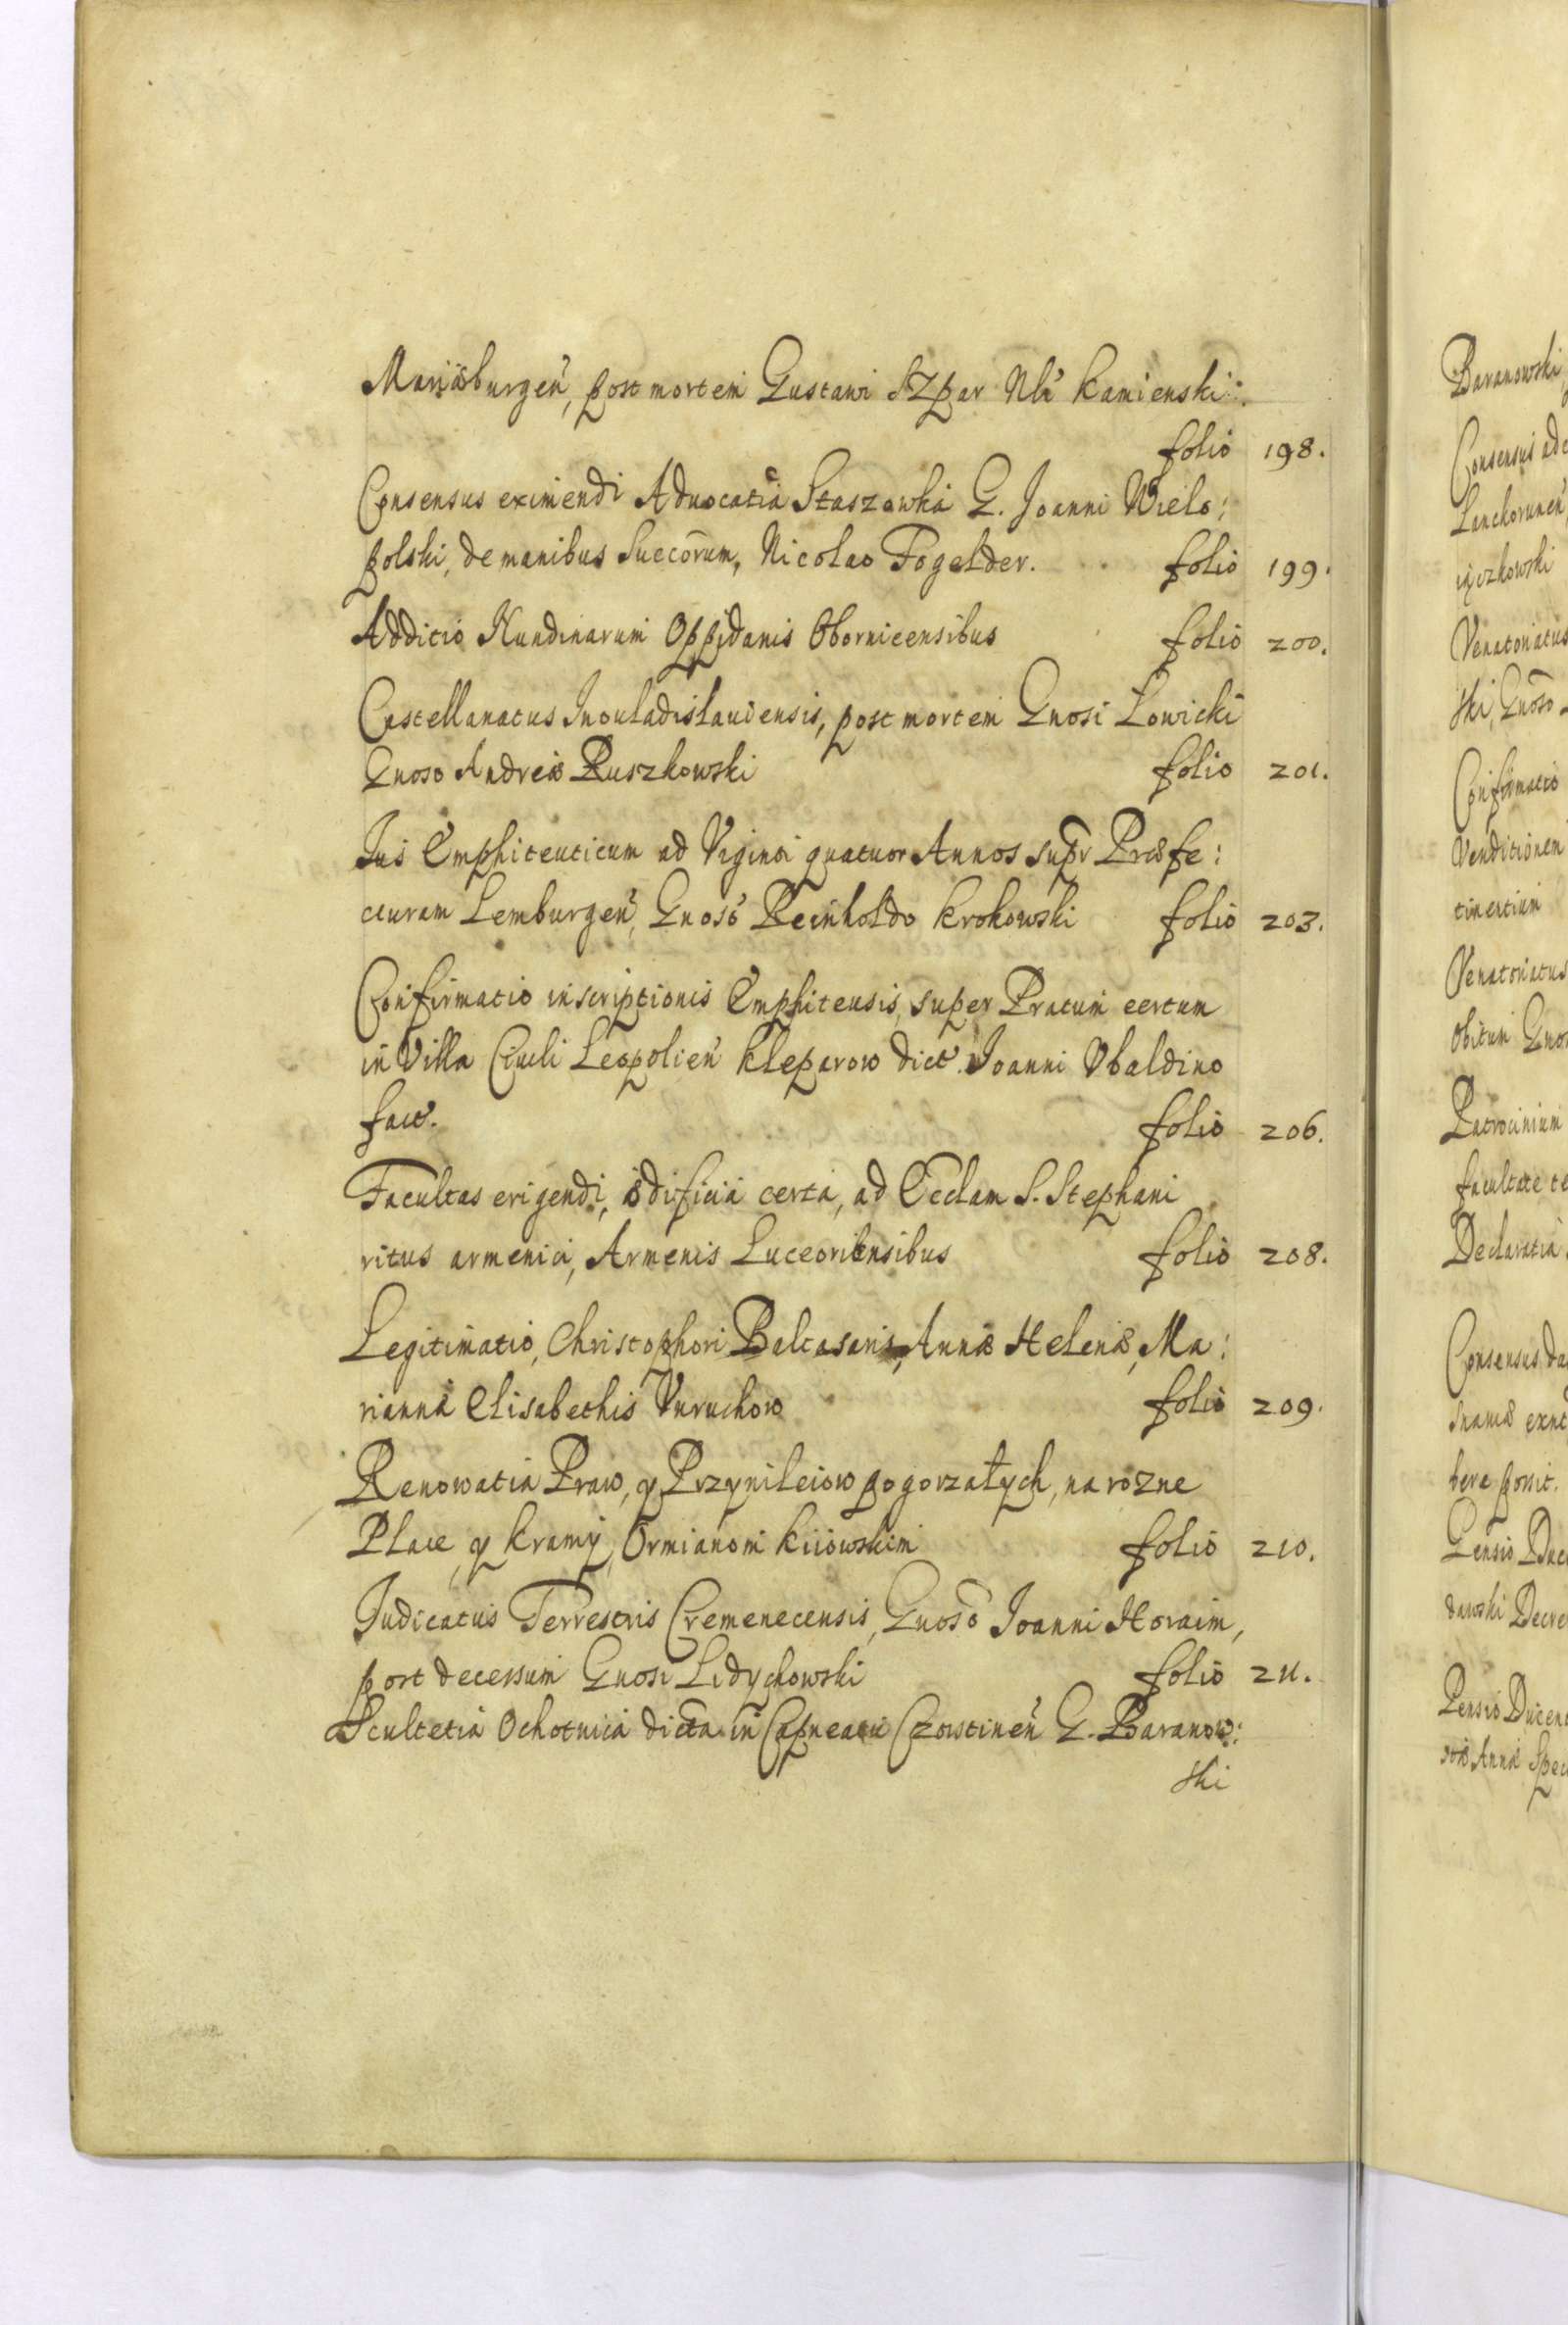 Mariæburgen̄, post mortem Gustawi SZpar Nli Kamienski:
folio 198.
Consensus eximendi Advocatiā Staszowka G. Joanni Wielo:
polski, de manibus Suecorum, Nicolao Fogelder. folio 199.
Additio Nundinarum Oppidanis Obornicensibus folio 200.
Castellanatus Inouladislauiensis, post mortem Gnosi Lowicki
Gnoso Andreæ Ruszkowski folio 201.
Jus Emphiteuticum ad Viginti quatuor Annos supr Præfe:
cturam Lemburgen̄, Gnoso Reinholdo Krokowski folio 203.
Confirmatio inscriptionis Emphiteusis, super Pratum certum
in Villa Ciuli Leopolien̄ Kleparow dict. Joanni Vbaldino
fact. folio 206.
Facultas erigendi, ædificia certa, ad Eccl̄am S. Stephani
ritus armenici, Armenis Luceoriensibus folio 208.
Legitimatio, Christophori Baltasaris, Annæ Helenæ, Ma:
riannæ Elisabethis Vnruchow folio 209.
Renowatia Praw, y Przywileiow pogorzałych, na rozne
Place, y kramy, Ormianom kiiowskim folio 210.
Judicatus Terrestris Cremenecensis, Gnoso Joanni Horaim,
post decessum Gnosi Ledychowski folio 211.
Scultetia Ochotnica dicta in Capneatu Czorstinen̄ G. Baranow:
ski
Baranowski
Consensus ad
Lanckorunen̄
Venatoriatus
ski, Gnoso
Confirmatio
Venditionem
Venatoriatus
obitum Gno
Patrocinium
facultate
Declaratia
Consensus da
bere possit.
dawski Decre
Pensio Ducen
Annæ Spec